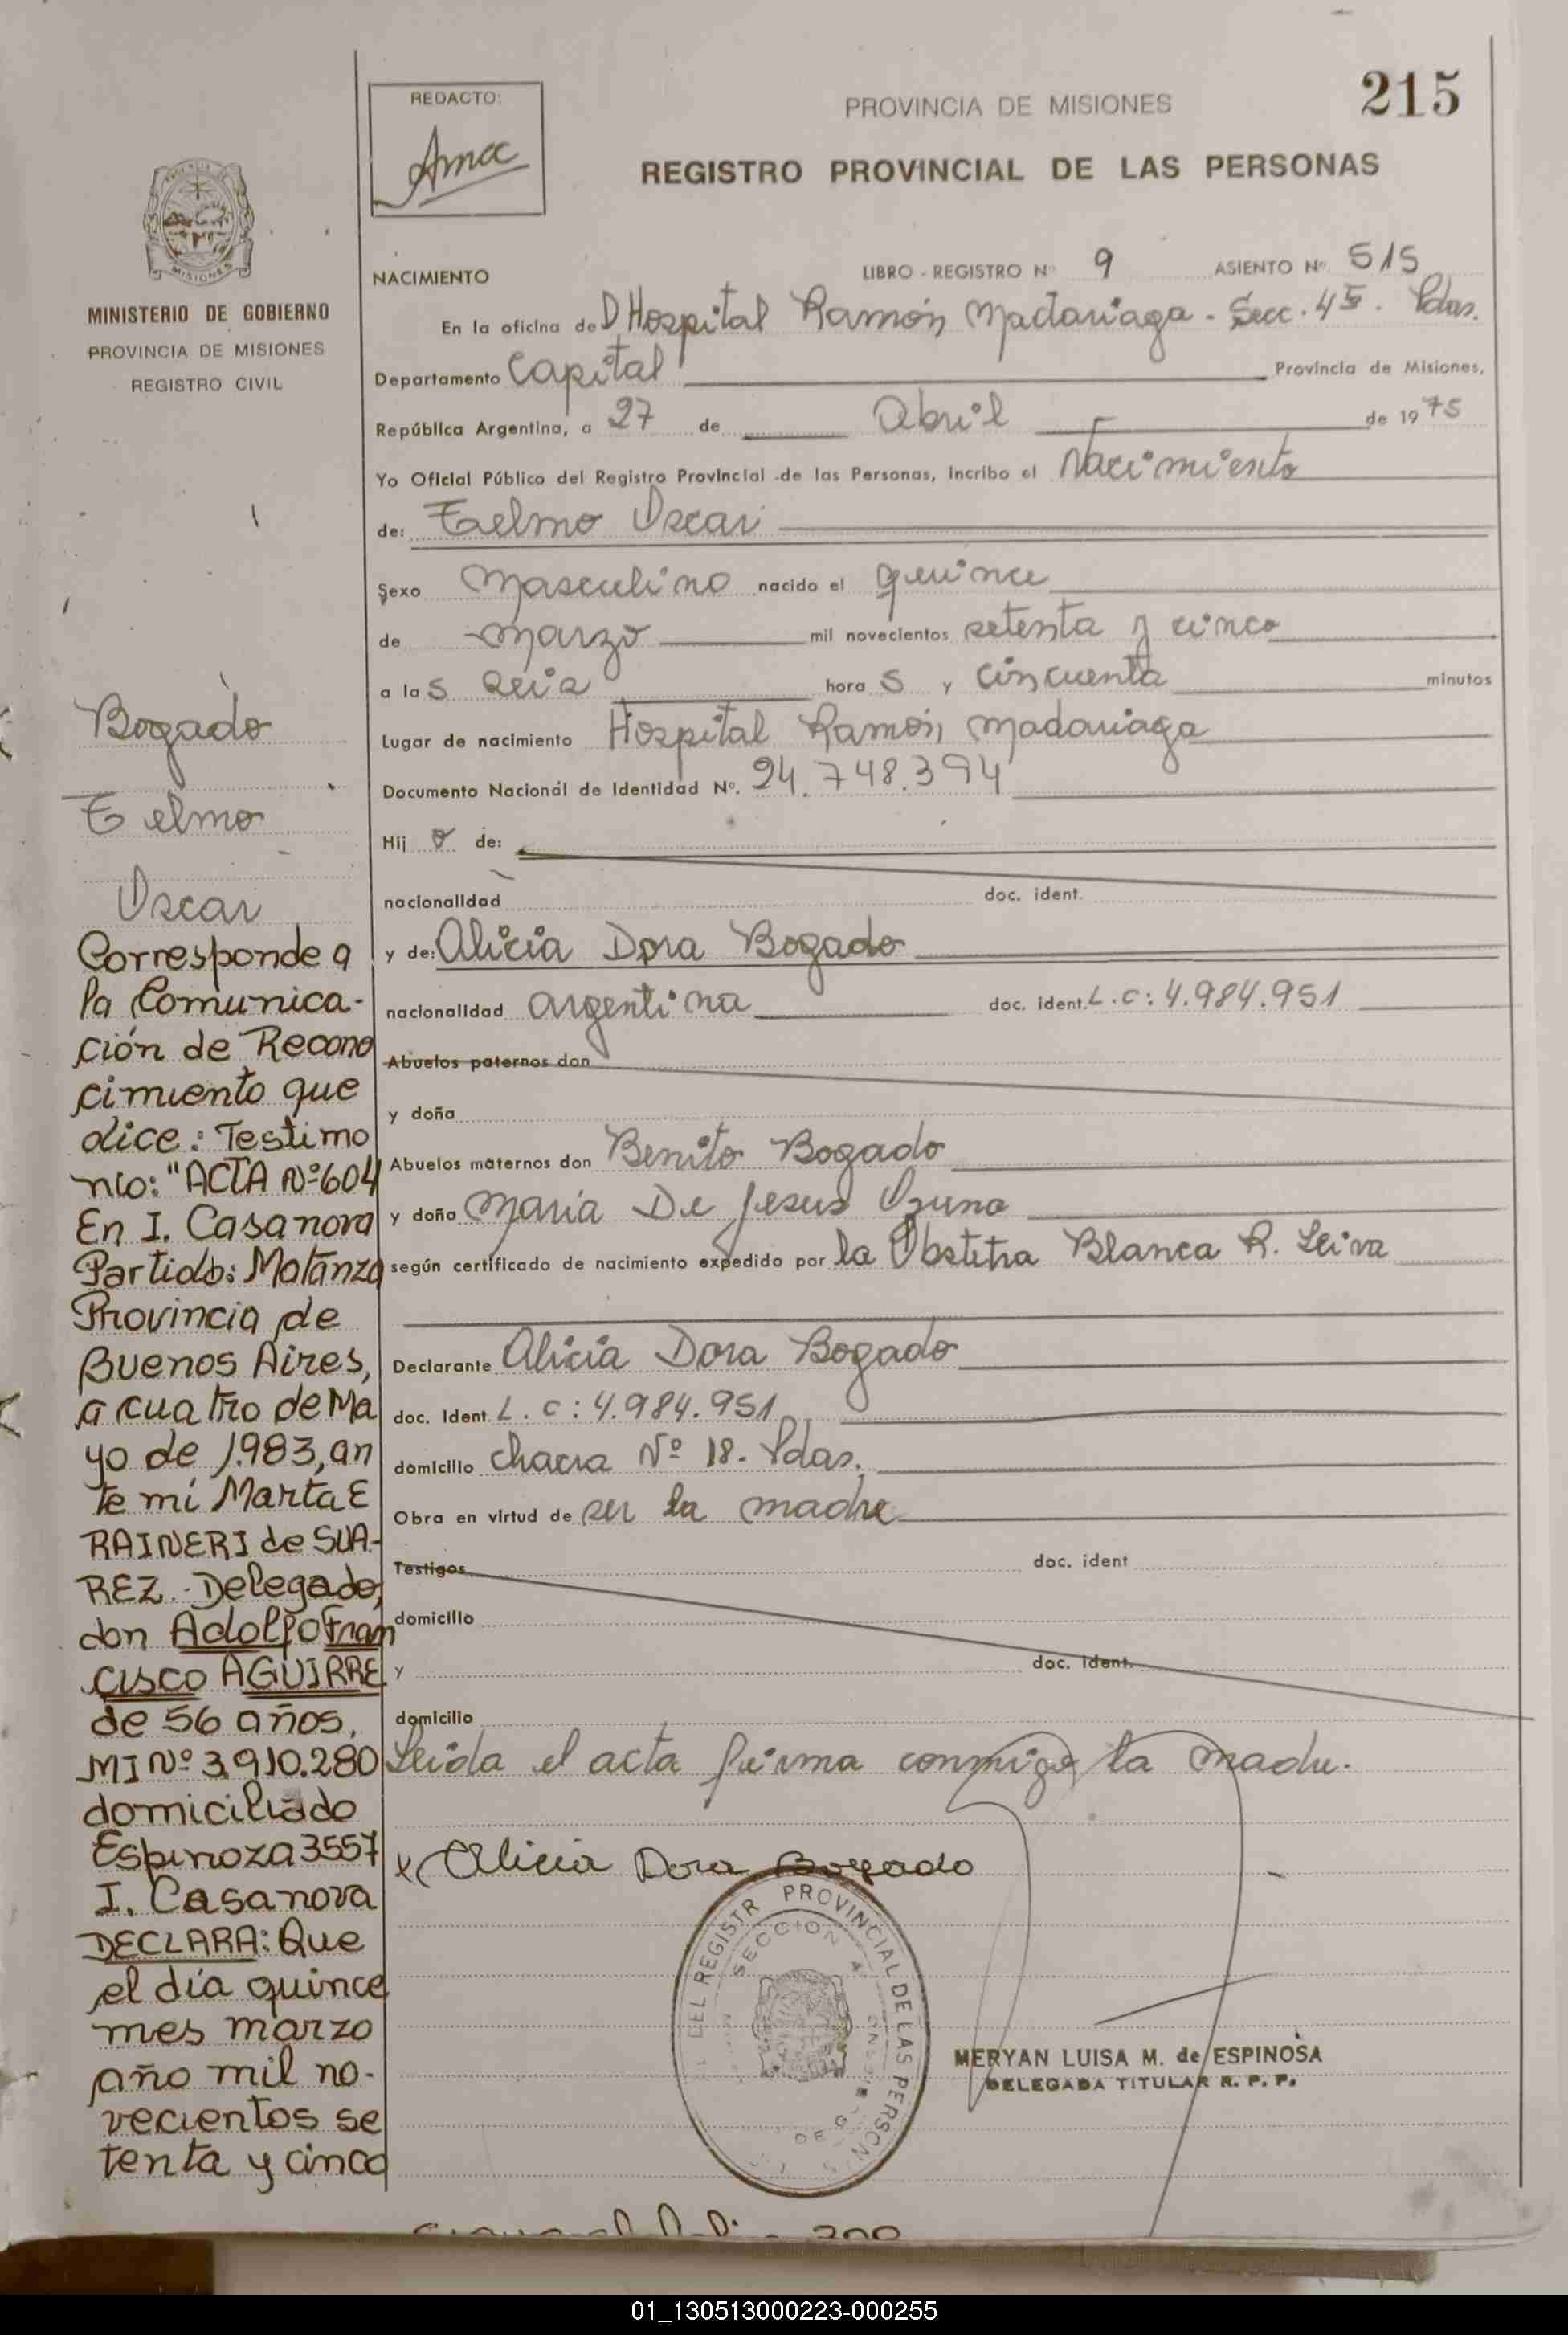 215
REDACTO:
PROVINCIA DE MISIONES
REGISTRO PROVINCIAL DE LAS PERSONAS
MISIONES
MINISTERIO DE GOBIERNO
PROVINCIA DE MISIONES
REGISTRO CIVIL
NACIMIENTO LIBRO - REGISTRO Nº 9 ASIENTO Nº 515
En la oficina de D Hospital Ramón Madariaga - Secc. 4ª. Pdas.
Departamento Capital Provincia de Misiones,
República Argentina, a 27 de Abril de 1975
Yo Oficial Público del Registro Provincial de las Personas, incribo el Nacimiento
de: Telmo Oscar
Sexo masculino nacido el quince
de marzo mil novecientos setenta y cinco
a las seis horas y cincuenta minutos
Lugar de nacimiento Hospital Ramón Madariaga
Documento Nacional de Identidad Nº. 24.748.394
Hijo de:
nacionalidad doc. ident.
y de: Alicia Dora Bogado
nacionalidad argentina doc. ident. L.C: 4.984.951
Abuelos paternos don
y doña
Abuelos maternos don Benito Bogado
y doña Maria De Jesus Ozuna
según certificado de nacimiento expedido por la Obstetra Blanca R. Leiva
Declarante Alicia Dora Bogado
doc. Ident L.C: 4.984.951
domicilio chacra Nº 18. Pdas.
Obra en virtud de ser la madre
Testigos doc. ident
domicilio
y doc. ident.
domicilio
Leida el acta firma conmigo la madre.
x Alicia Dora Bogado
DEL REGISTR PROVINCIAL DE LAS PERSON S
SECCION 4ª
MERYAN LUISA M. de ESPINOSA
DELEGADA TITULAR R. P. P.
Bogado
Telmo
Oscar
Corresponde a
la Comunica-
ción de Recono
cimiento que
dice: Testimo
nio: "ACTA Nº 604
En I. Casanova
Partido: Matanza
Provincia de
Buenos Aires,
a cuatro de Ma
yo de 1.983, an
te mi Marta E
RAINERI de SUA-
REZ - Delegado,
don Adolfo Fran
cisco AGUIRRE
de 56 años,
MI Nº 3.910.280
domiciliado
Espinoza 3557
I. Casanova
DECLARA: Que
el día quince
mes marzo
año mil no-
vecientos se
tenta y cinco
01_130513000223-000255